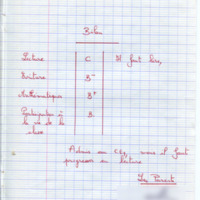 Bilan
Lecture C Il faut lire,
Ecriture B-
Mathématiques B+
Participation à B
la vie de la
classe
Admis au CE2, mais il faut
progresser en lecture
Les Parents